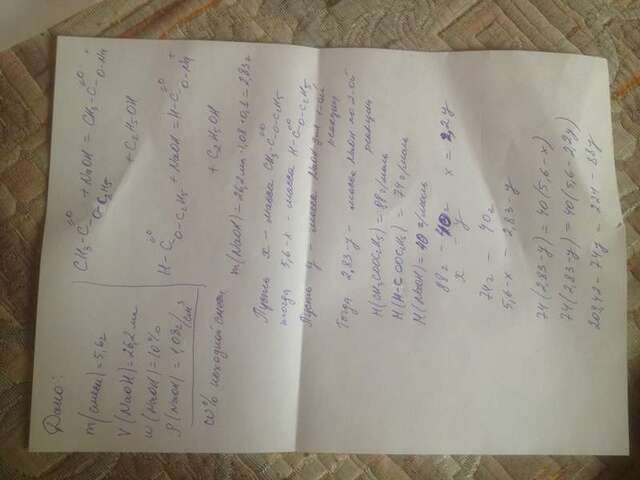 Дано:
m(смеси) = 5,6г
V(NaOH) = 26,2 мл
W(NaOH) = 10%
ρ(NaOH) = 1,08г/см³
ω% исходной смеси
CH₃-C=O O-C₂H₅ + NaOH = CH₃-C=O O-Na +
+ C₂H₅OH
H-C=O O-C₂H₅ + NaOH = H-C=O O-Na +
+ C₂H₅OH
m(NaOH) = 26,2 мл · 1,08 · 0,1 = 2,83г
Пусть x - масса CH₃-C=O-O-C₂H₅
тогда 5,6-x - масса H-C=O O-C₂H₅
Пусть y - масса NaOH для 1-ой
реакции
Тогда 2,83-y - масса NaOH по 2-ой
реакции
M(CH₃COOC₂H₅) = 88г/моль
M(H-COOC₂H₅) = 74г/моль
M(NaOH) = 40 г/моль
88г - 40г
x - y x = 2,2y
74г - 40г
5,6-x - 2,83-y
74(2,83-y) = 40(5,6-x)
74(2,83-y) = 40(5,6-2,2y)
209,42-74y = 224-88y